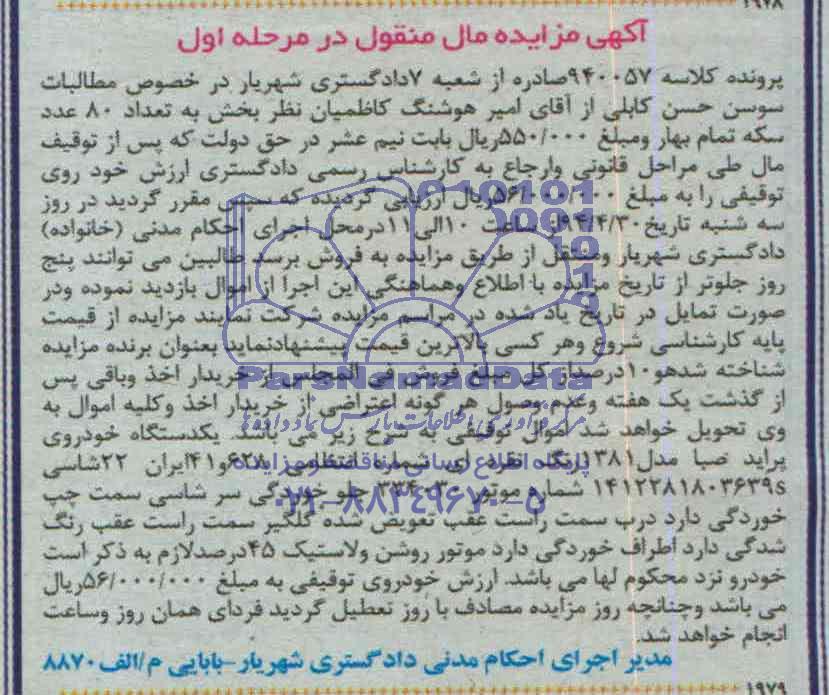 ۱۹۷۸
آگهی مزایده مال منقول در مرحله اول
پرونده کلاسه ۹۴۰۰۵۷صادره از شعبه ۷دادگستری شهریار در خصوص مطالبات
سوسن حسن کابلی از آقای امیر هوشنگ کاظمیان نظر بخش به تعداد ۸۰ عدد
سکه تمام بهار ومبلغ ۵۵۰/۰۰۰ریال بابت نیم عشر در حق دولت که پس از توقیف
مال طی مراحل قانونی وارجاع به کارشناس رسمی دادگستری ارزش خود روی
توقیفی را به مبلغ ۵۶/۰۰۰/۰۰۰ریال ارزیابی گردیده که سپس مقرر گردید در روز
سه شنبه تاریخ۹۴/۴/۳۰از ساعت ۱۰الی۱۱درمحل اجرای احکام مدنی (خانواده)
دادگستری شهریار ومنتقل از طریق مزایده به فروش برسد طالبین می توانند پنج
روز جلوتر از تاریخ مزایده با اطلاع وهماهنگی این اجرا از اموال بازدید نموده ودر
صورت تمایل در تاریخ یاد شده در مراسم مزایده شرکت نمایند مزایده از قیمت
پایه کارشناسی شروع وهر کسی بالاترین قیمت پیشنهادنماید بعنوان برنده مزایده
شناخته شدهو۱۰درصداز کل مبلغ فروش فی المجلس از خریدار اخذ وباقی پس
از گذشت یک هفته وعدم وصول هر گونه اعتراضی از خریدار اخذ وکلیه اموال به
وی تحویل خواهد شد اموال توقیفی به شرح زیر می باشد. یکدستگاه خودروی
پراید صبا مدل۱۳۸۱رنگ نقره ای شماره انتظامی ۶۲۸و۴۱ایران ۲۲شاسی
۱۴۱۲۲۸۱۸۰۳۶۳۹s شماره موتور جلو خوردگی سر شاسی سمت چپ
خوردگی دارد درب سمت راست عقب تعویض شده گلگیر سمت راست عقب رنگ
شدگی دارد اطراف خوردگی دارد موتور روشن ولاستیک ۴۵درصدلازم به ذکر است
خودرو نزد محکوم لها می باشد. ارزش خودروی توقیفی به مبلغ ۵۶/۰۰۰/۰۰۰ریال
می باشد وچنانچه روز مزایده مصادف با روز تعطیل گردید فردای همان روز وساعت
انجام خواهد شد.
مدیر اجرای احکام مدنی دادگستری شهریار-بابایی م/الف۸۸۷۰
۱۹۷۹
ParsNamadData
مرکز فرآوری اطلاعات پارس نماد داده‌ها
پایگاه اطلاع رسانی مناقصه و مزایده
۰۲۱-۸۸۳۴۹۶۷۰-۵